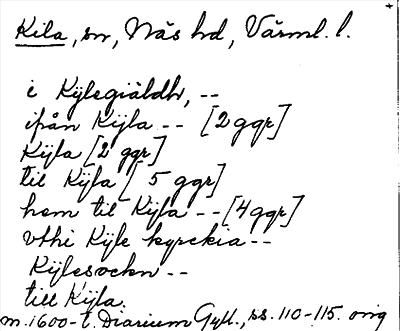 Kila, sn, Näs hd, Värml. l.
i Kÿlegiäldh, --
ifrån Kÿla -- [2 ggr]
Kÿla [2 ggr]
til Kÿla [5 ggr]
hem til Kÿla -- [4 ggr]
vthi Kÿle kyrckia --
Kÿlesockn --
till Kÿla.
m. 1600-t. Diarium Gyll., ss. 110-115. orig